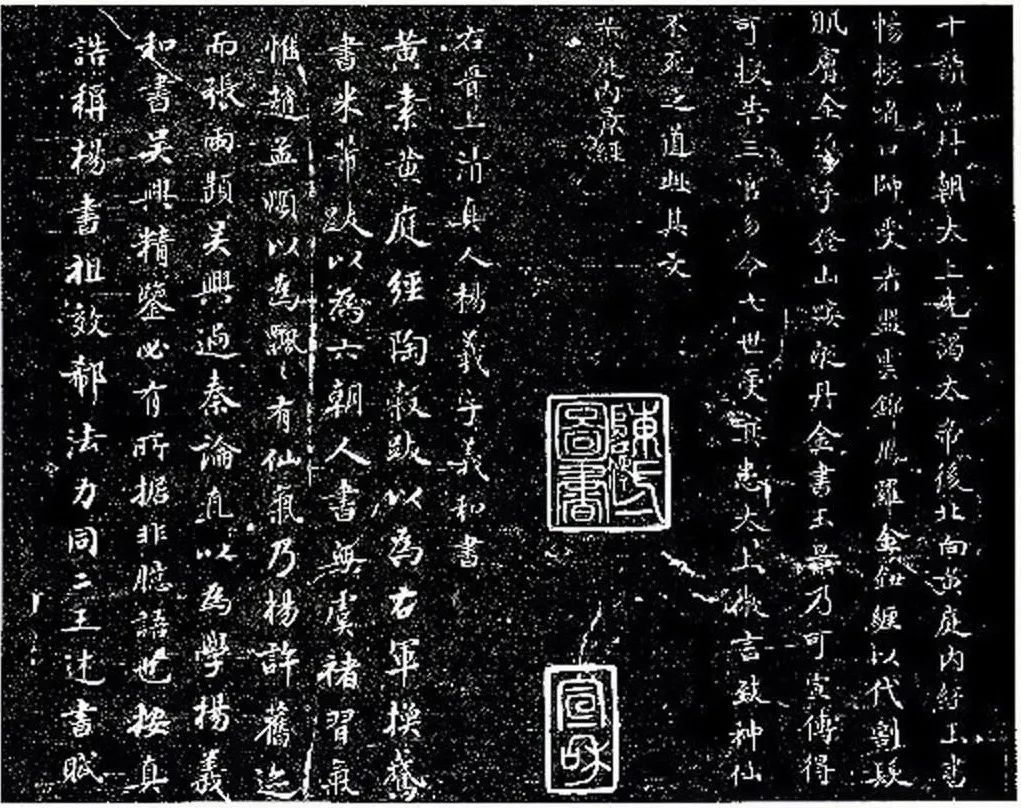 十讀四拜朝太上先謁太帝後北向黃庭內經玉書
暢授者曰師受者盟雲錦鳳羅金鈕纏以代割髮
肌膚全攜手登山歃液丹金書玉景乃可宣傳得
可授告三官勿令七世受冥患太上微言致神仙
不死之道此其文
黃庭內景經
右晉上清真人楊羲字羲和書
黃素黃庭經陶穀跋以為右軍換鵞
書米芾跋以為六朝人書無虞褚習氣
惟趙孟頫以為飄〻有仙氣乃楊許舊迹
而張雨題吳興過秦論直以為學楊羲
和書吳興精鑒必有所据非臆語也按真
誥稱楊書祖效郗法力同二王述書賦
圖書
宣和